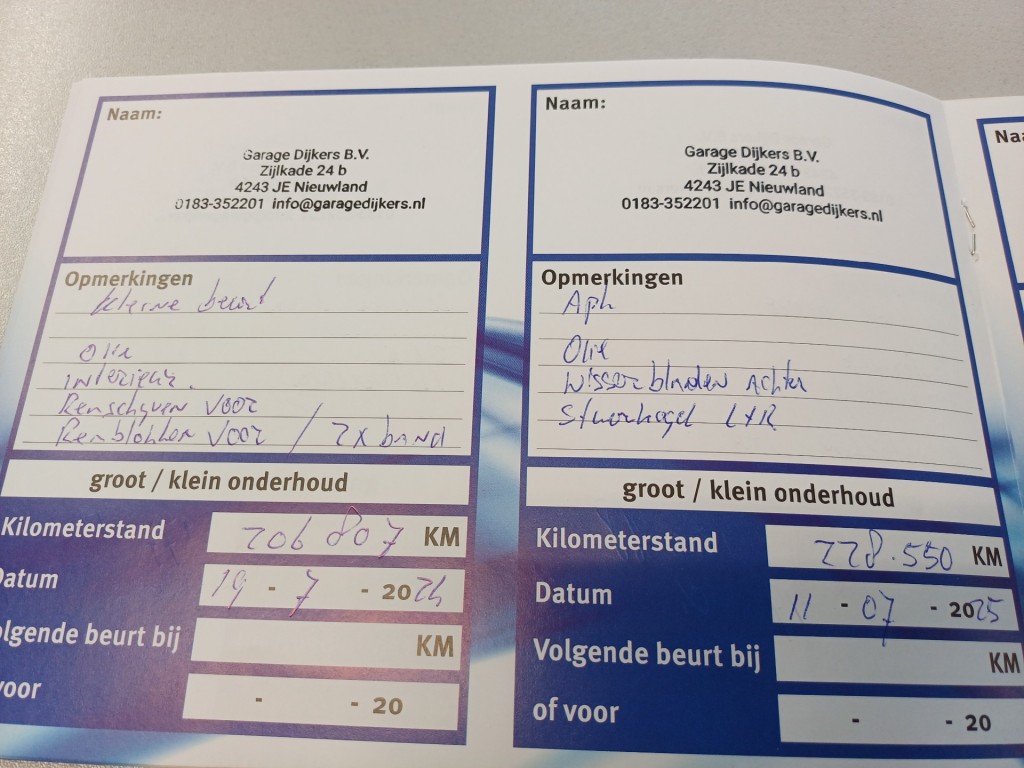 Naam:
Garage Dijkers B.V.
Zijlkade 24 b
4243 JE Nieuwland
0183-352201 info@garagedijkers.nl
Opmerkingen
kleine beurt
Olie
interieur.
Remschyven voor
Remblokken voor / 2x band
groot / klein onderhoud
Kilometerstand 206 807 KM
Datum 19 - 7 - 2024
olgende beurt bij KM
voor - - 20
Naam:
Garage Dijkers B.V.
Zijlkade 24 b
4243 JE Nieuwland
0183-352201 info@garagedijkers.nl
Opmerkingen
Apk
Olie
Wisserbladen Achter
Stuurkogel L+R
groot / klein onderhoud
Kilometerstand 228.550 KM
Datum 11 - 07 - 2025
Volgende beurt bij KM
of voor - - 20
Naa